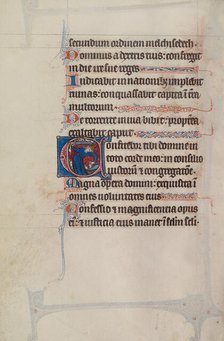 secundum ordinem melchisedech
Dominus a dextris tuis: confregit
in die ire sue reges
Iudicabit in nationib; implebit
ruinas: conquassabit capita in
multorum
De torrente in uia bibet: propterea
exaltabit caput
Confitebor tibi domine in
toto corde meo: in consilio
iustorum & congregatione
Magna opera domini: exquisita in
omnes uoluntates eius
Confessio & magnificentia opus
eius: & iusticia eius manet in seculum seli